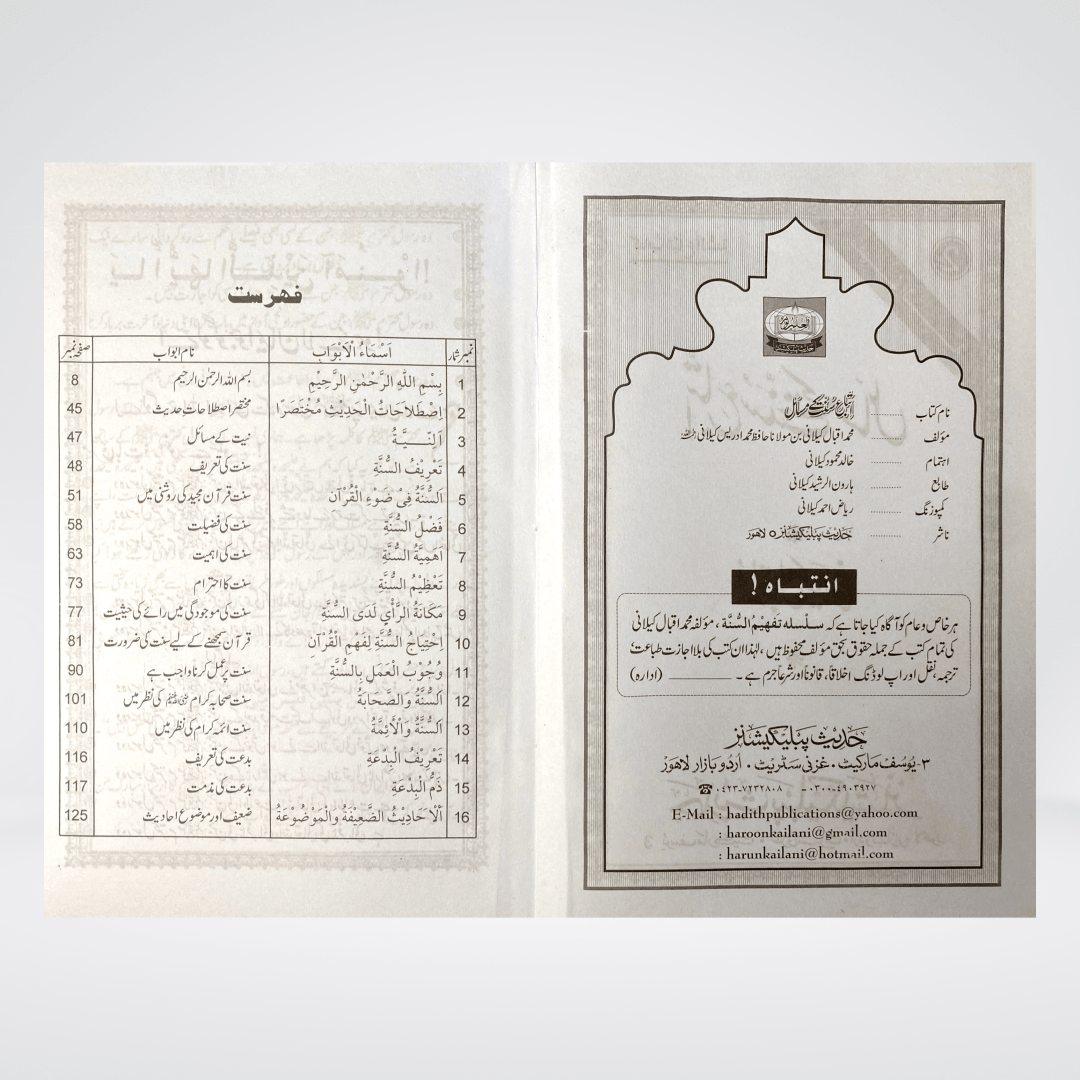 نام کتاب ......... اتباع سنت کے مسائل
مؤلف ......... محمد اقبال کیلانی بن مولانا حافظ محمد ادریس کیلانی رحمہ اللہ
اہتمام ......... خالد محمود کیلانی
طابع ......... ہارون الرشید کیلانی
کمپوزنگ ......... ریاض احمد کیلانی
ناشر ......... حدیث پبلیکیشنز ٥ لاہور
انتباہ !
ہر خاص و عام کو آگاہ کیا جاتا ہے کہ سلسلہ تفہیم السنۃ ، مؤلفہ محمد اقبال کیلانی
کی تمام کتب کے جملہ حقوق بحق مؤلف محفوظ ہیں ، لہٰذا ان کتب کی بلا اجازت طباعت ،
ترجمہ ، نقل اور اپ لوڈنگ اخلاقاً، قانوناً اور شرعاً جرم ہے ۔ ــــــــــــ (ادارہ)
حدیث پبلیکیشنز
۳- یوسف مارکیٹ • غزنی سٹریٹ • اردو بازار لاہور
☎ ۰۴۲۳-۷۲۳۲۸۰۸ - ۰۳۰۰-۴۹۰۳۹۲۷
E-Mail : hadithpublications@yahoo.com
: haroonkailani@gmail.com
: harunkailani@hotmail.com
فہرست
نمبر شمار اَسْمَاءُ الْاَبْوَابِ نام ابواب صفحہ نمبر
1 بِسْمِ اللّٰهِ الرَّحْمٰنِ الرَّحِيْمِ بسم اللہ الرحمٰن الرحیم 8
2 اِصْطِلَاحَاتُ الْحَدِيْثِ مُخْتَصَرًا مختصر اصطلاحات حدیث 45
3 اَلنِّـيَّـةُ نیت کے مسائل 47
4 تَعْرِيْفُ السُّنَّةِ سنت کی تعریف 48
5 اَلسُّنَّةُ فِیْ ضَوْءِ الْقُرْآنِ سنت قرآن مجید کی روشنی میں 51
6 فَضْلُ السُّنَّةِ سنت کی فضیلت 58
7 اَهَمِّيَّةُ السُّنَّةِ سنت کی اہمیت 63
8 تَعْظِيْمُ السُّنَّةِ سنت کا احترام 73
9 مَكَانَةُ الرَّأْيِ لَدَى السُّنَّةِ سنت کی موجودگی میں رائے کی حیثیت 77
10 اِحْتِيَاجُ السُّنَّةِ لِفَهْمِ الْقُرْآنِ قرآن سمجھنے کے لیے سنت کی ضرورت 81
11 وُجُوْبُ الْعَمَلِ بِالسُّنَّةِ سنت پر عمل کرنا واجب ہے 90
12 اَلسُّنَّةُ وَالصَّحَابَةُ سنت صحابہ کرام کی نظر میں 101
13 اَلسُّنَّةُ وَالْاَئِمَّةُ سنت ائمہ کرام کی نظر میں 110
14 تَعْرِيْفُ الْبِدْعَةِ بدعت کی تعریف 116
15 ذَمُّ الْبِدْعَةِ بدعت کی مذمت 117
16 اَلْاَحَادِيْثُ الضَّعِيْفَةُ وَالْمَوْضُوْعَةُ ضعیف اور موضوع احادیث 125